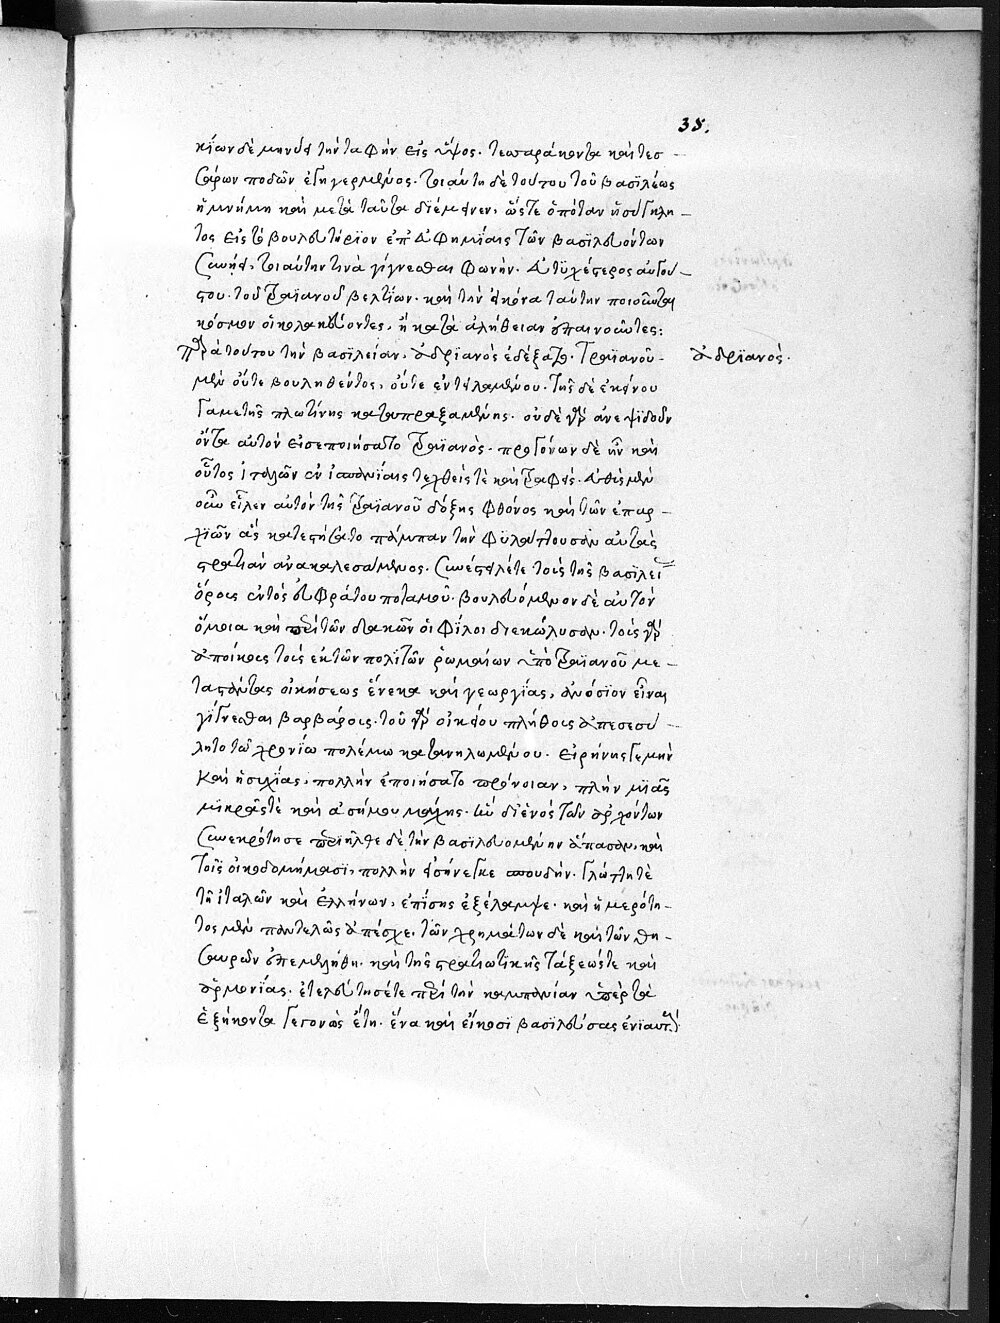 35.
κίων δὲ μηνύει τὴν ταφὴν εἰς ὕψος. τεσσαράκοντα καὶ τεσ -
σάρων ποδῶν ἐγηγερμένος. τοιαύτη δὲ τούτου τοῦ βασιλέως
ἡ μνήμη καὶ μετὰ ταῦτα διέμεινεν, ὥστε ὁπόταν ἡ σύγκλη -
τος εἰς τὸ βουλευτήριον ἐπ' εὐφημίαις τῶν βασιλευόντων
συνῄει, τοιαύτην τινὰ γίγνεσθαι φωνήν. εὐτυχέστερος αὐγού -
στου. τοῦ τραϊανοῦ βελτίων. καὶ τὴν εἰκόνα ταύτην ποιοῦνται
κόσμον οἱ κολακεύοντες, ἢ κατὰ ἀλήθειαν ἐπαινοῦντες:
παρὰ τούτου τὴν βασιλείαν, ἀδριανὸς ἐδέξατο. Τραϊανοῦ -
ἀδριανός.
μὲν οὔτε βουληθέντος, οὔτε ἐντειλαμένου. τῆς δὲ ἐκείνου
γαμετῆς πλωτίνης καταπραξαμένης. οὐδὲ γὰρ ἀνεψιδοῦν
ὄντα αὐτὸν εἰσεποιήσατο τραϊανός. προγόνων δὲ ἦν καὶ
οὗτος ἰταλῶν ἐν ἱσπανίαις τεχθείς τὲ καὶ τραφείς. εὐθὺς μὲν
οὖν εἷλεν αὐτὸν τῆς τραϊανοῦ δόξης φθόνος καὶ τῶν ἐπαρ -
χιῶν ἃς κατεστήσατο πάμπαν τὴν φυλάττουσαν αὐτὰς
στρατιὰν ἀνακαλεσάμενος. συνέστειλέ τε τοῖς τῆς βασιλεί
ὅροις ἐντὸς εὐφράτου ποταμοῦ. βουλευόμενον δὲ αὐτὸν
ὅμοια καὶ περὶ τῶν δακῶν οἱ φίλοι διεκώλυσαν. τοῖς γὰρ
ἀποίκοις τοῖς ἐκ τῶν πολιτῶν ῥωμαίων ὑπὸ τραϊανοῦ με -
ταστάντας οἰκήσεως ἕνεκα καὶ γεωργίας, ἀνόσιον εἶναι
γίγνεσθαι βαρβάροις. τοῦ γὰρ οἰκείου πλήθους ἀπεσεσύ -
λητο τῷ χρονίῳ πολέμῳ κατανηλωμένου. Εἰρήνης γε μὴν
καὶ ἡσυχίας, πολλὴν ἐποιήσατο πρόνοιαν, πλὴν μιᾶς
μικρᾶς τὲ καὶ ἀσήμου μάχης. ἣν δι' ἑνὸς τῶν ἀρχόντων
συνεκρότησε περιῆλθε δὲ τὴν βασιλευομένην ἅπασαν, καὶ
τοῖς οἰκοδομήμασι, πολλὴν εἰσήνεγκε σπουδήν. γλώττῃ τὲ
τῇ ἰταλῶν καὶ ἑλλήνων, ἐπίσης ἐξέλαμψε. καὶ ἡμερότη -
τος μὲν παντελῶς ἀπέσχε. τῶν χρημάτων δὲ καὶ τῶν θη -
σαυρῶν ἐπεμελήθη. καὶ τῆς στρατιωτικῆς τάξεώς τε καὶ
ἁρμονίας. ἐτελεύτησέ τε περὶ τὴν καμπανίαν ὑπὲρ τὰ
ἑξήκοντα γεγονὼς ἔτη. ἕνα καὶ εἴκοσι βασιλεύσας ἐνιαυτούς